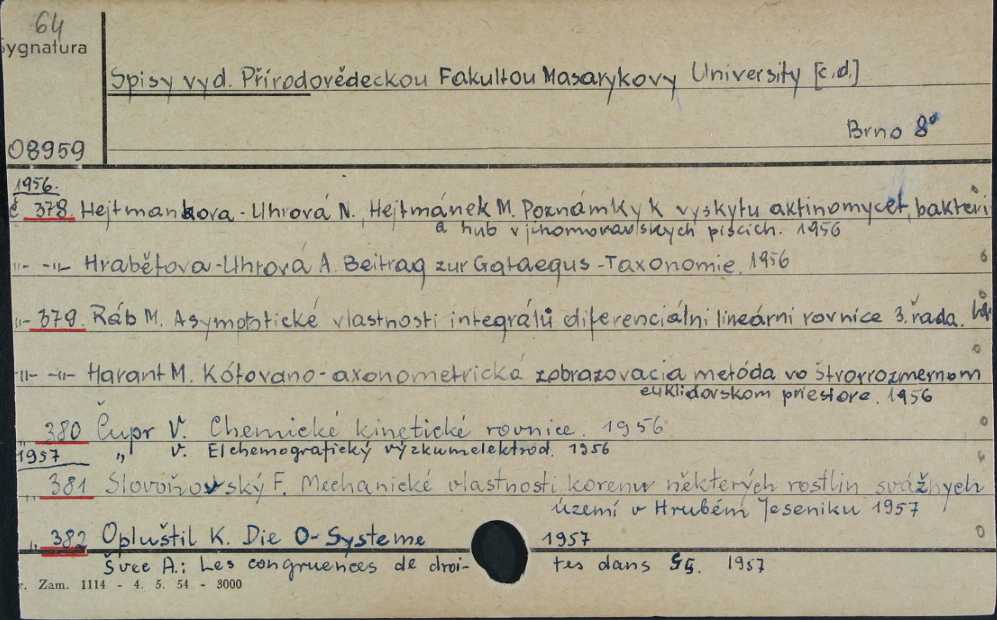 64
Sygnatura
Spisy vyd. Přírodovědeckou Fakultou Masarykovy University [c.d.]
Brno 8°
08959
1956.
č 378. Hejtmankova-Uhrová N., Hejtmánek M. Poznámky k vyskytu aktinomycet, bakterii
a hub v jihomoravských piscích. 1956
"- -"- Hraběťova-Uhrová A. Beitrag zur Gataegus-Taxonomie. 1956
"- 379. Ráb M. Asymptotické vlastnosti integrálů diferenciální lineární rovnice 3. řada.
-"- -"- Harant M. Kótovano-axonometrická zobrazovacia metóda vo štvorrozmernom
euklidovskom priestore. 1956
380 Čupr V. Chemické kinetické rovnice. 1956
1957 " V. Elchemografický výzkumelektrod. 1956
381 Slovoňovský F. Mechanické vlastnosti korenu některých rostlin svážných
území v Hrubém Jeseniku 1957
" 382 Opluštil K. Die O-Systeme 1957
Švec A.: Les congruences de droi- tes dans S5. 1957
r. Zam. 1114 - 4. 5. 54 - 3000